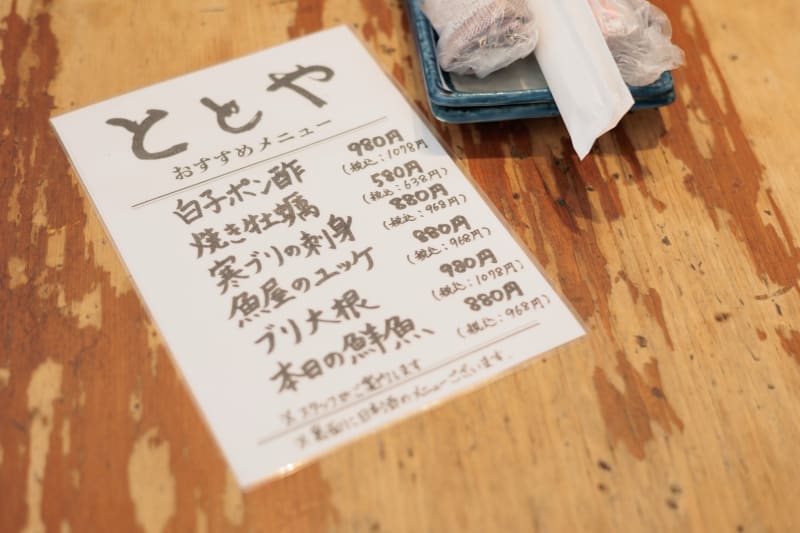 ととや
おすすめメニュー
白子ポン酢 980円
(税込:1078円)
焼き牡蠣 580円
(税込:638円)
寒ブリの刺身 880円
(税込:968円)
魚屋のユッケ 880円
(税込:968円)
ブリ大根 980円
(税込:1078円)
本日の鮮魚、 880円
(税込:968円)
※スタッフがご案内します
※裏面に日本酒のメニューございます。